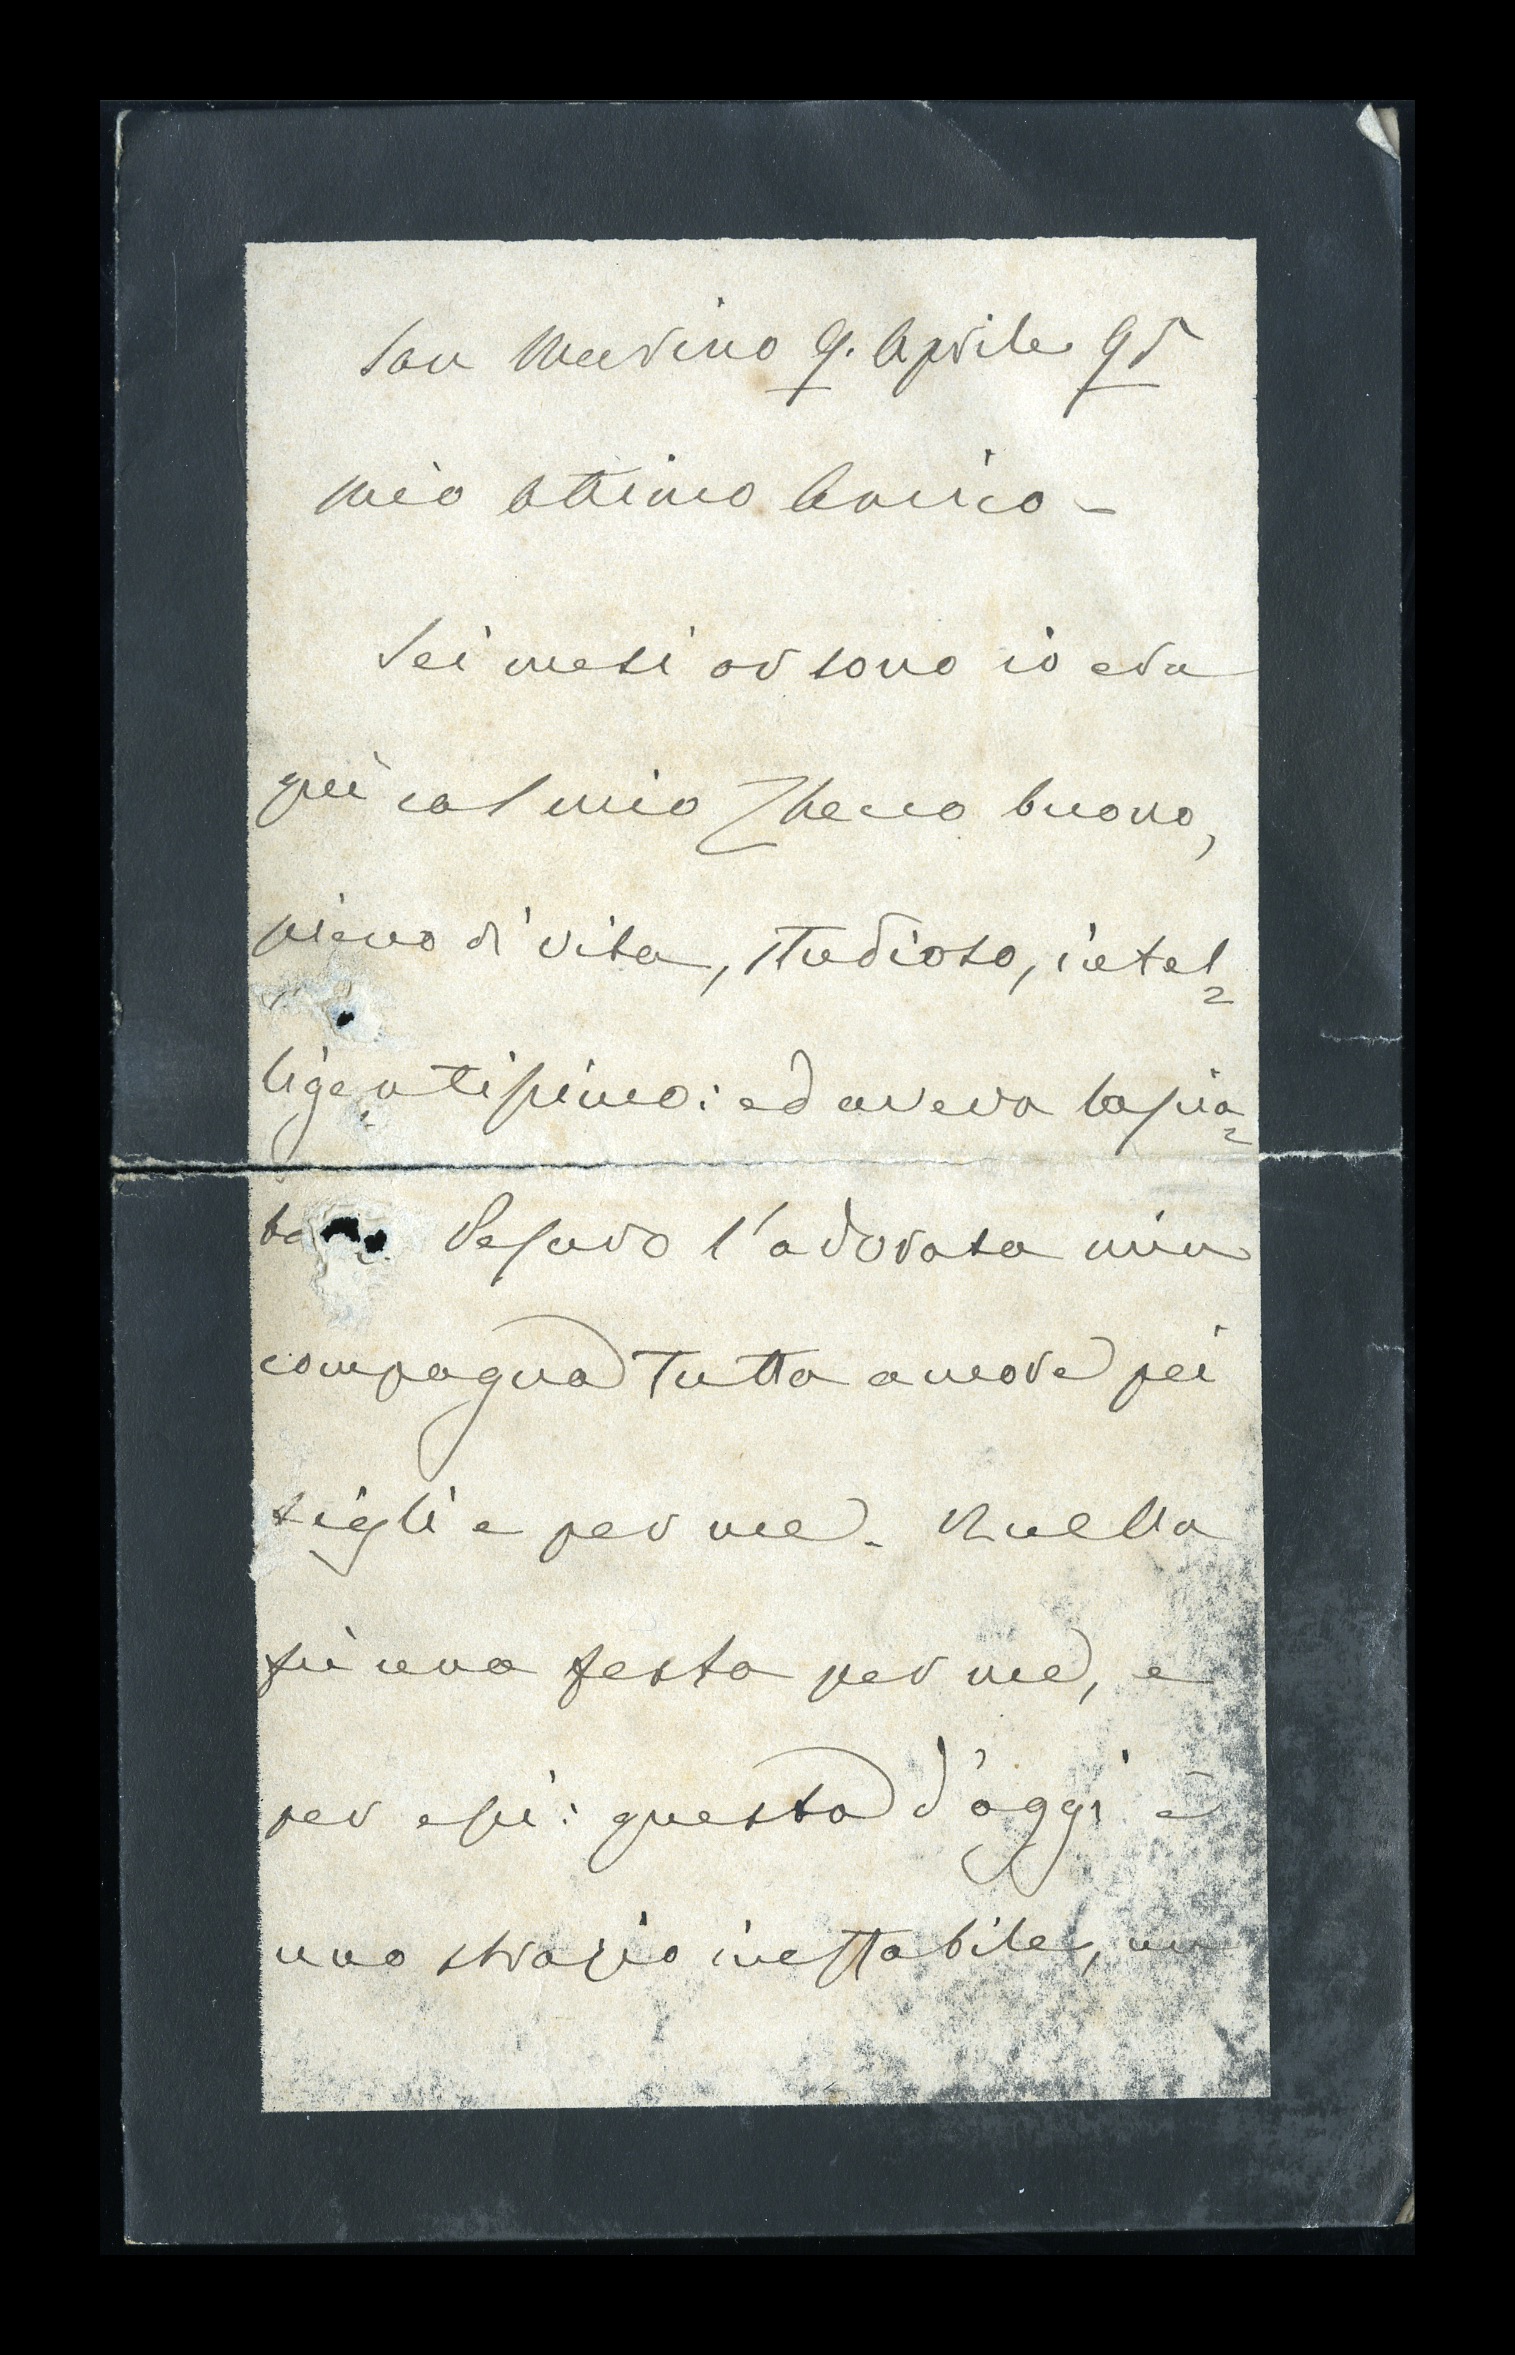 San Marino 9. Aprile 95
Mio Ottimo Amico -
Sei mesi or sono io era
quì col mio Checco buono,
pieno di vita, studioso, intel=
ligentissimo: ed aveva lascia=
to Pesaro l'adorata mia
compagna tutta amore pei
figli e per me. Quella
fù una festa per me, e
per essi: questa d'oggi è
uno strazio ineffabile, un